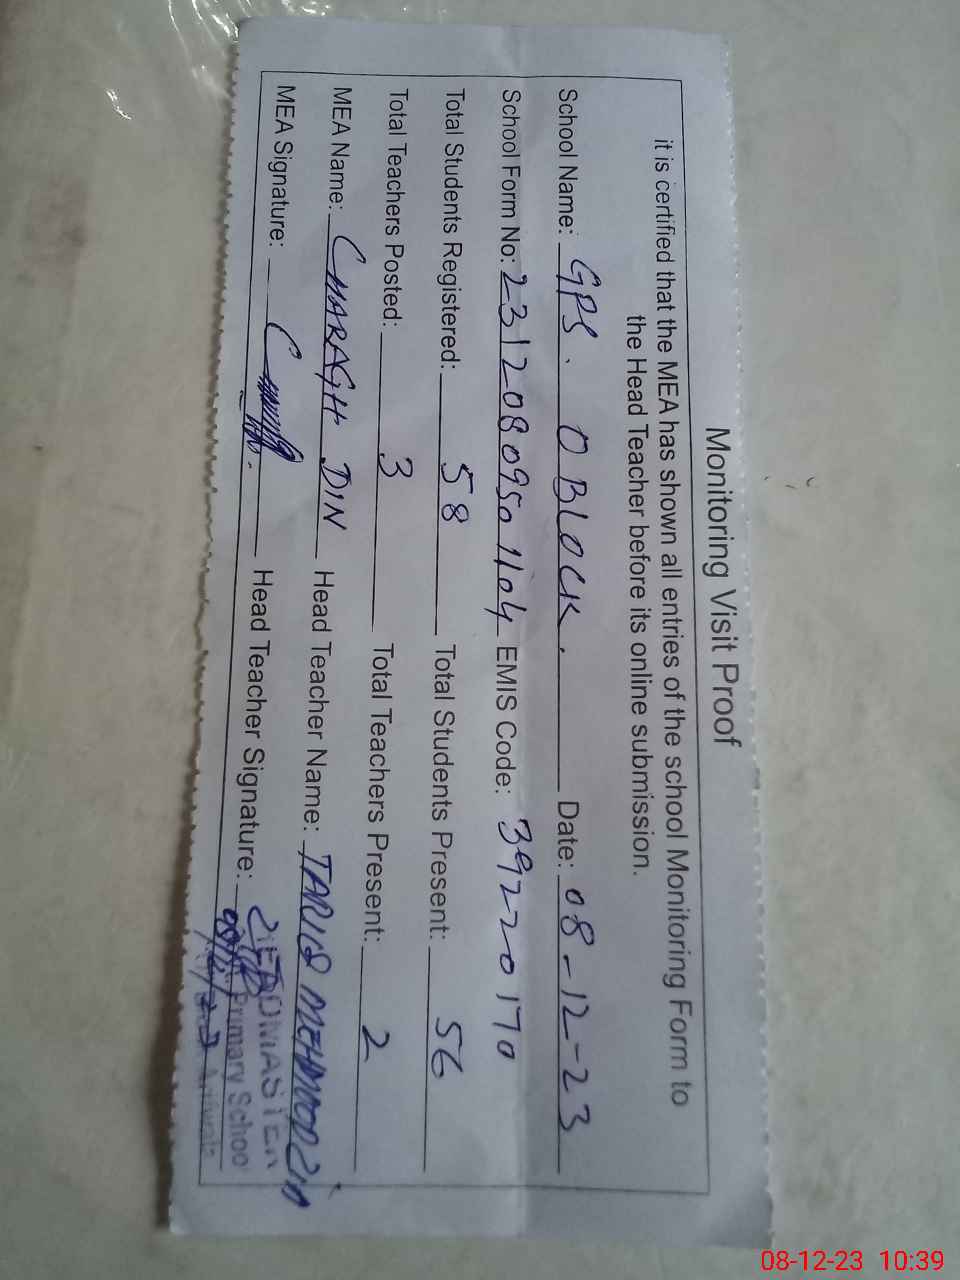 Monitoring Visit Proof
it is certified that the MEA has shown all entries of the school Monitoring Form to
the Head Teacher before its online submission.
School Name: GPS. O BLOCK. Date: 08-12-23
School Form No: 23120809501104 EMIS Code: 39220170
Total Students Registered: 58 Total Students Present: 56
Total Teachers Posted: 3 Total Teachers Present: 2
MEA Name: CHARAGH DIN Head Teacher Name: TARIQ MEHMOOD ZIA
MEA Signature: Head Teacher Signature:
HEADMASTER
Primary School
08-12-23 10:39